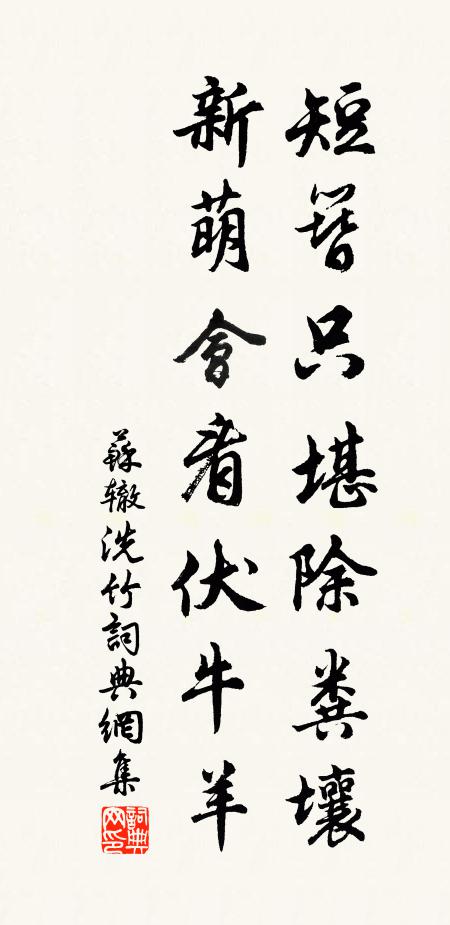 短篲只堪除糞壤
新萌會看伏牛羊
蘇辙洗竹詞典網集
詞典网印